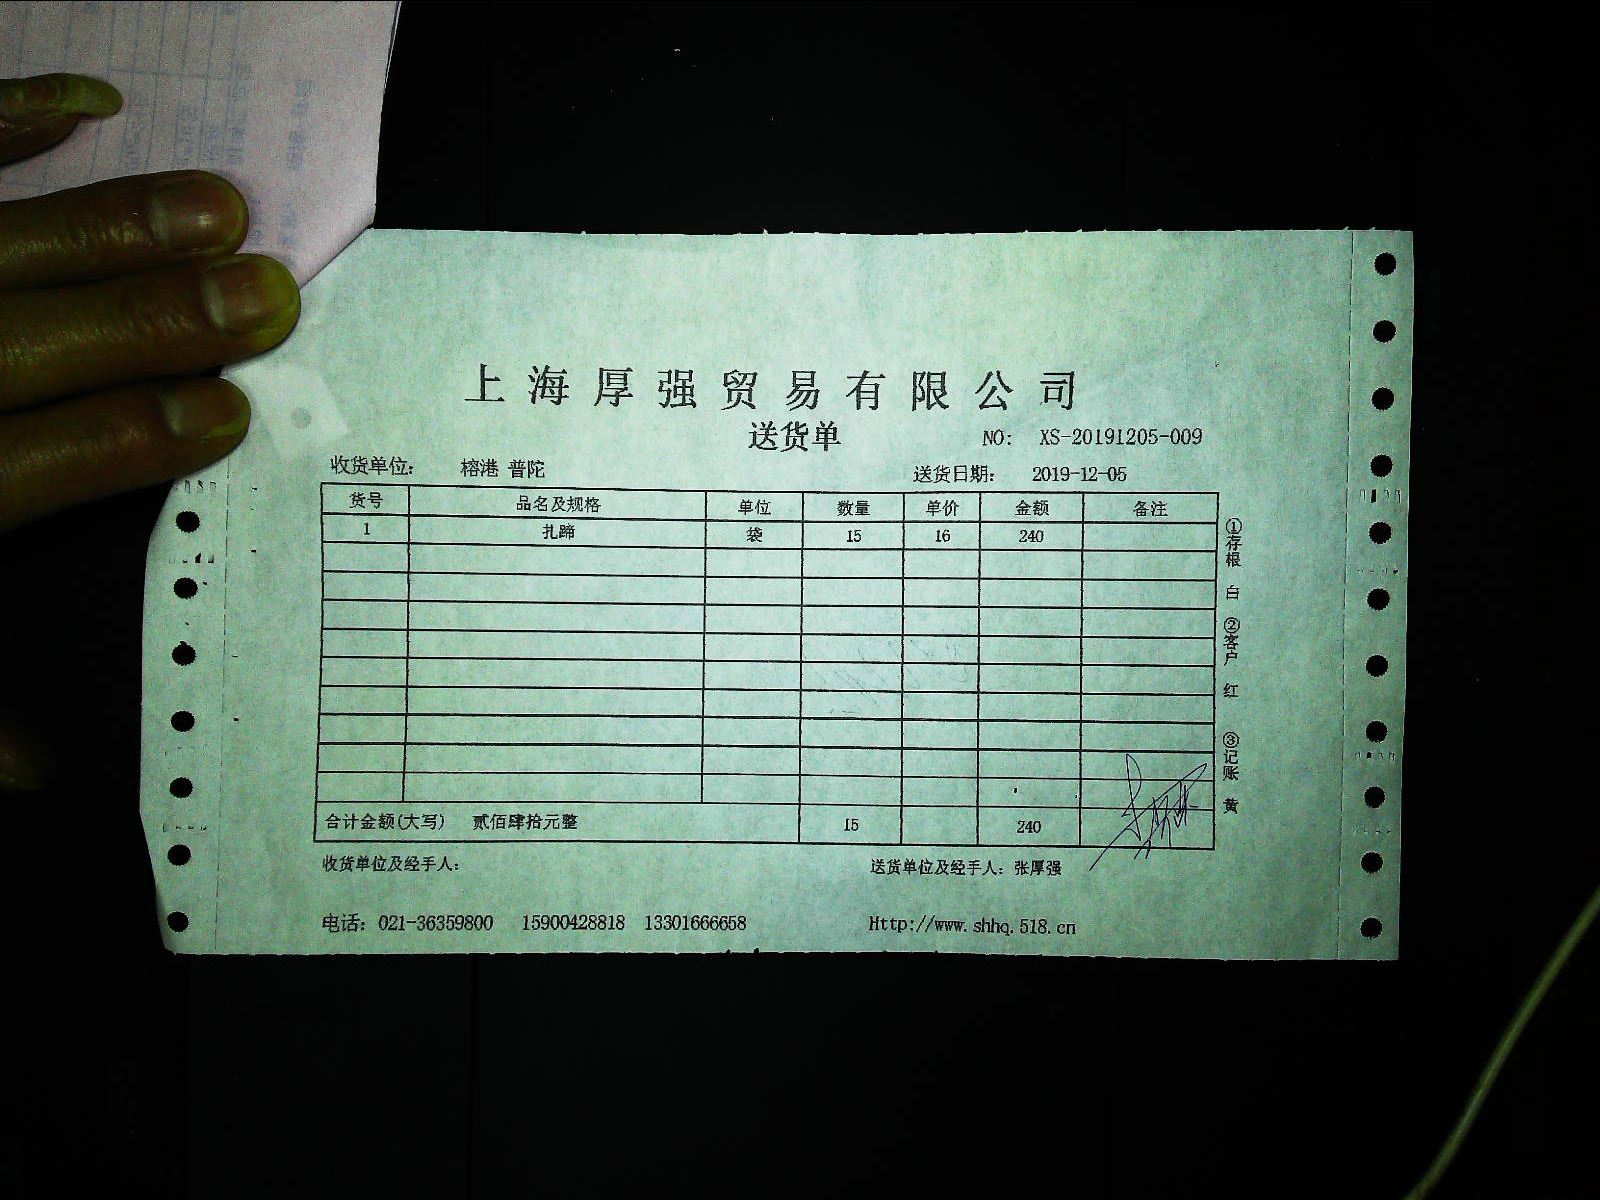 上海厚强贸易有限公司
送货单
NO: XS-20191205-009
收货单位: 榕港 普陀 送货日期: 2019-12-05
货号 品名及规格 单位 数量 单价 金额 备注
1 扎蹄 袋 15 16 240
合计金额(大写) 贰佰肆拾元整 15 240
收货单位及经手人: 送货单位及经手人: 张厚强
电话: 021-36359800 15900428818 13301666658 Http://www.shhq.518.cn
①存根 白 ②客户 红 ③记账 黄